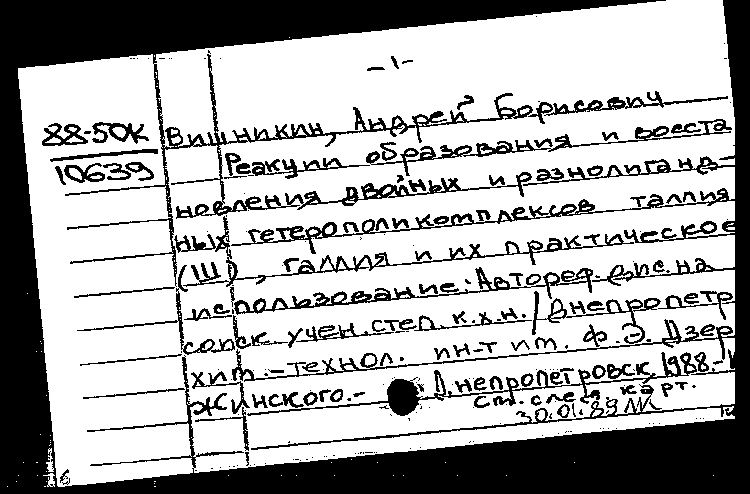 -1-
88-50К Вишникин, Андрей Борисович
10639 Реакции образования и восста
новления двойных и разнолиганд-
ных гетерополикомплексов таллия
(III), галлия и их практическое
использование: Автореф. дис. на
соиск. учен. степ. к.х.н. / Днепропетр
хим.-технол. ин-т им. Ф. Э. Дзер
жинского.- Днепропетровск. 1988.-
см. след. карт.
30.01.89
6